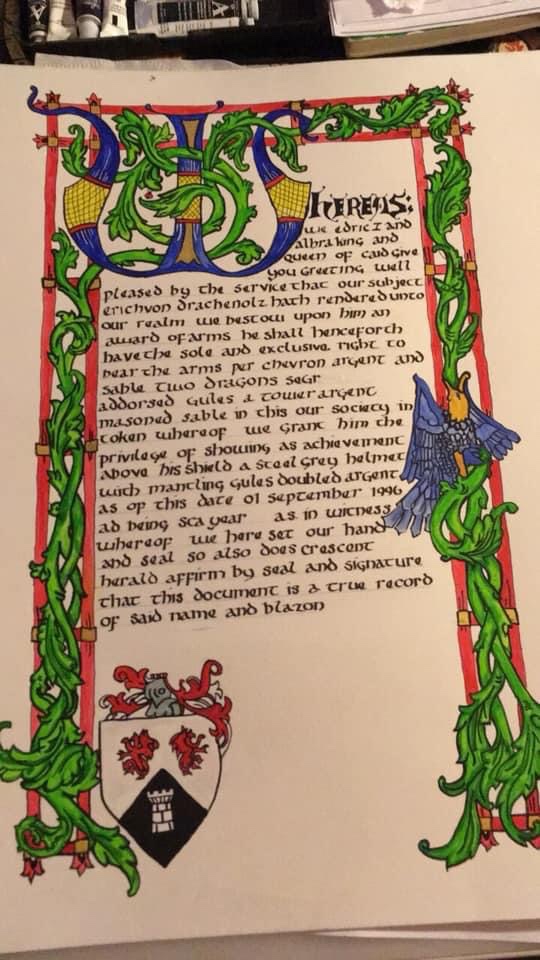 Whereas:
we edric I and
albra king and
queen of caid give
you Greeting well
pleased by the service that our subject
erich von drachenolz hath rendered unto
our realm we bestow upon him an
award of arms he shall henceforth
have the sole and exclusive right to
bear the arms per chevron argent and
sable two dragons segr
addorsed Gules a tower argent
masoned sable in this our society in
token whereof we grant him the
privilege of showing as achievement
above his shield a steel grey helmet
with mantling Gules doubled argent
as of this date 01 September 1996
ad being sca year as in witness
whereof we here set our hand
and seal so also does crescent
herald affirm by seal and signature
that this document is a true record
of said name and blazon